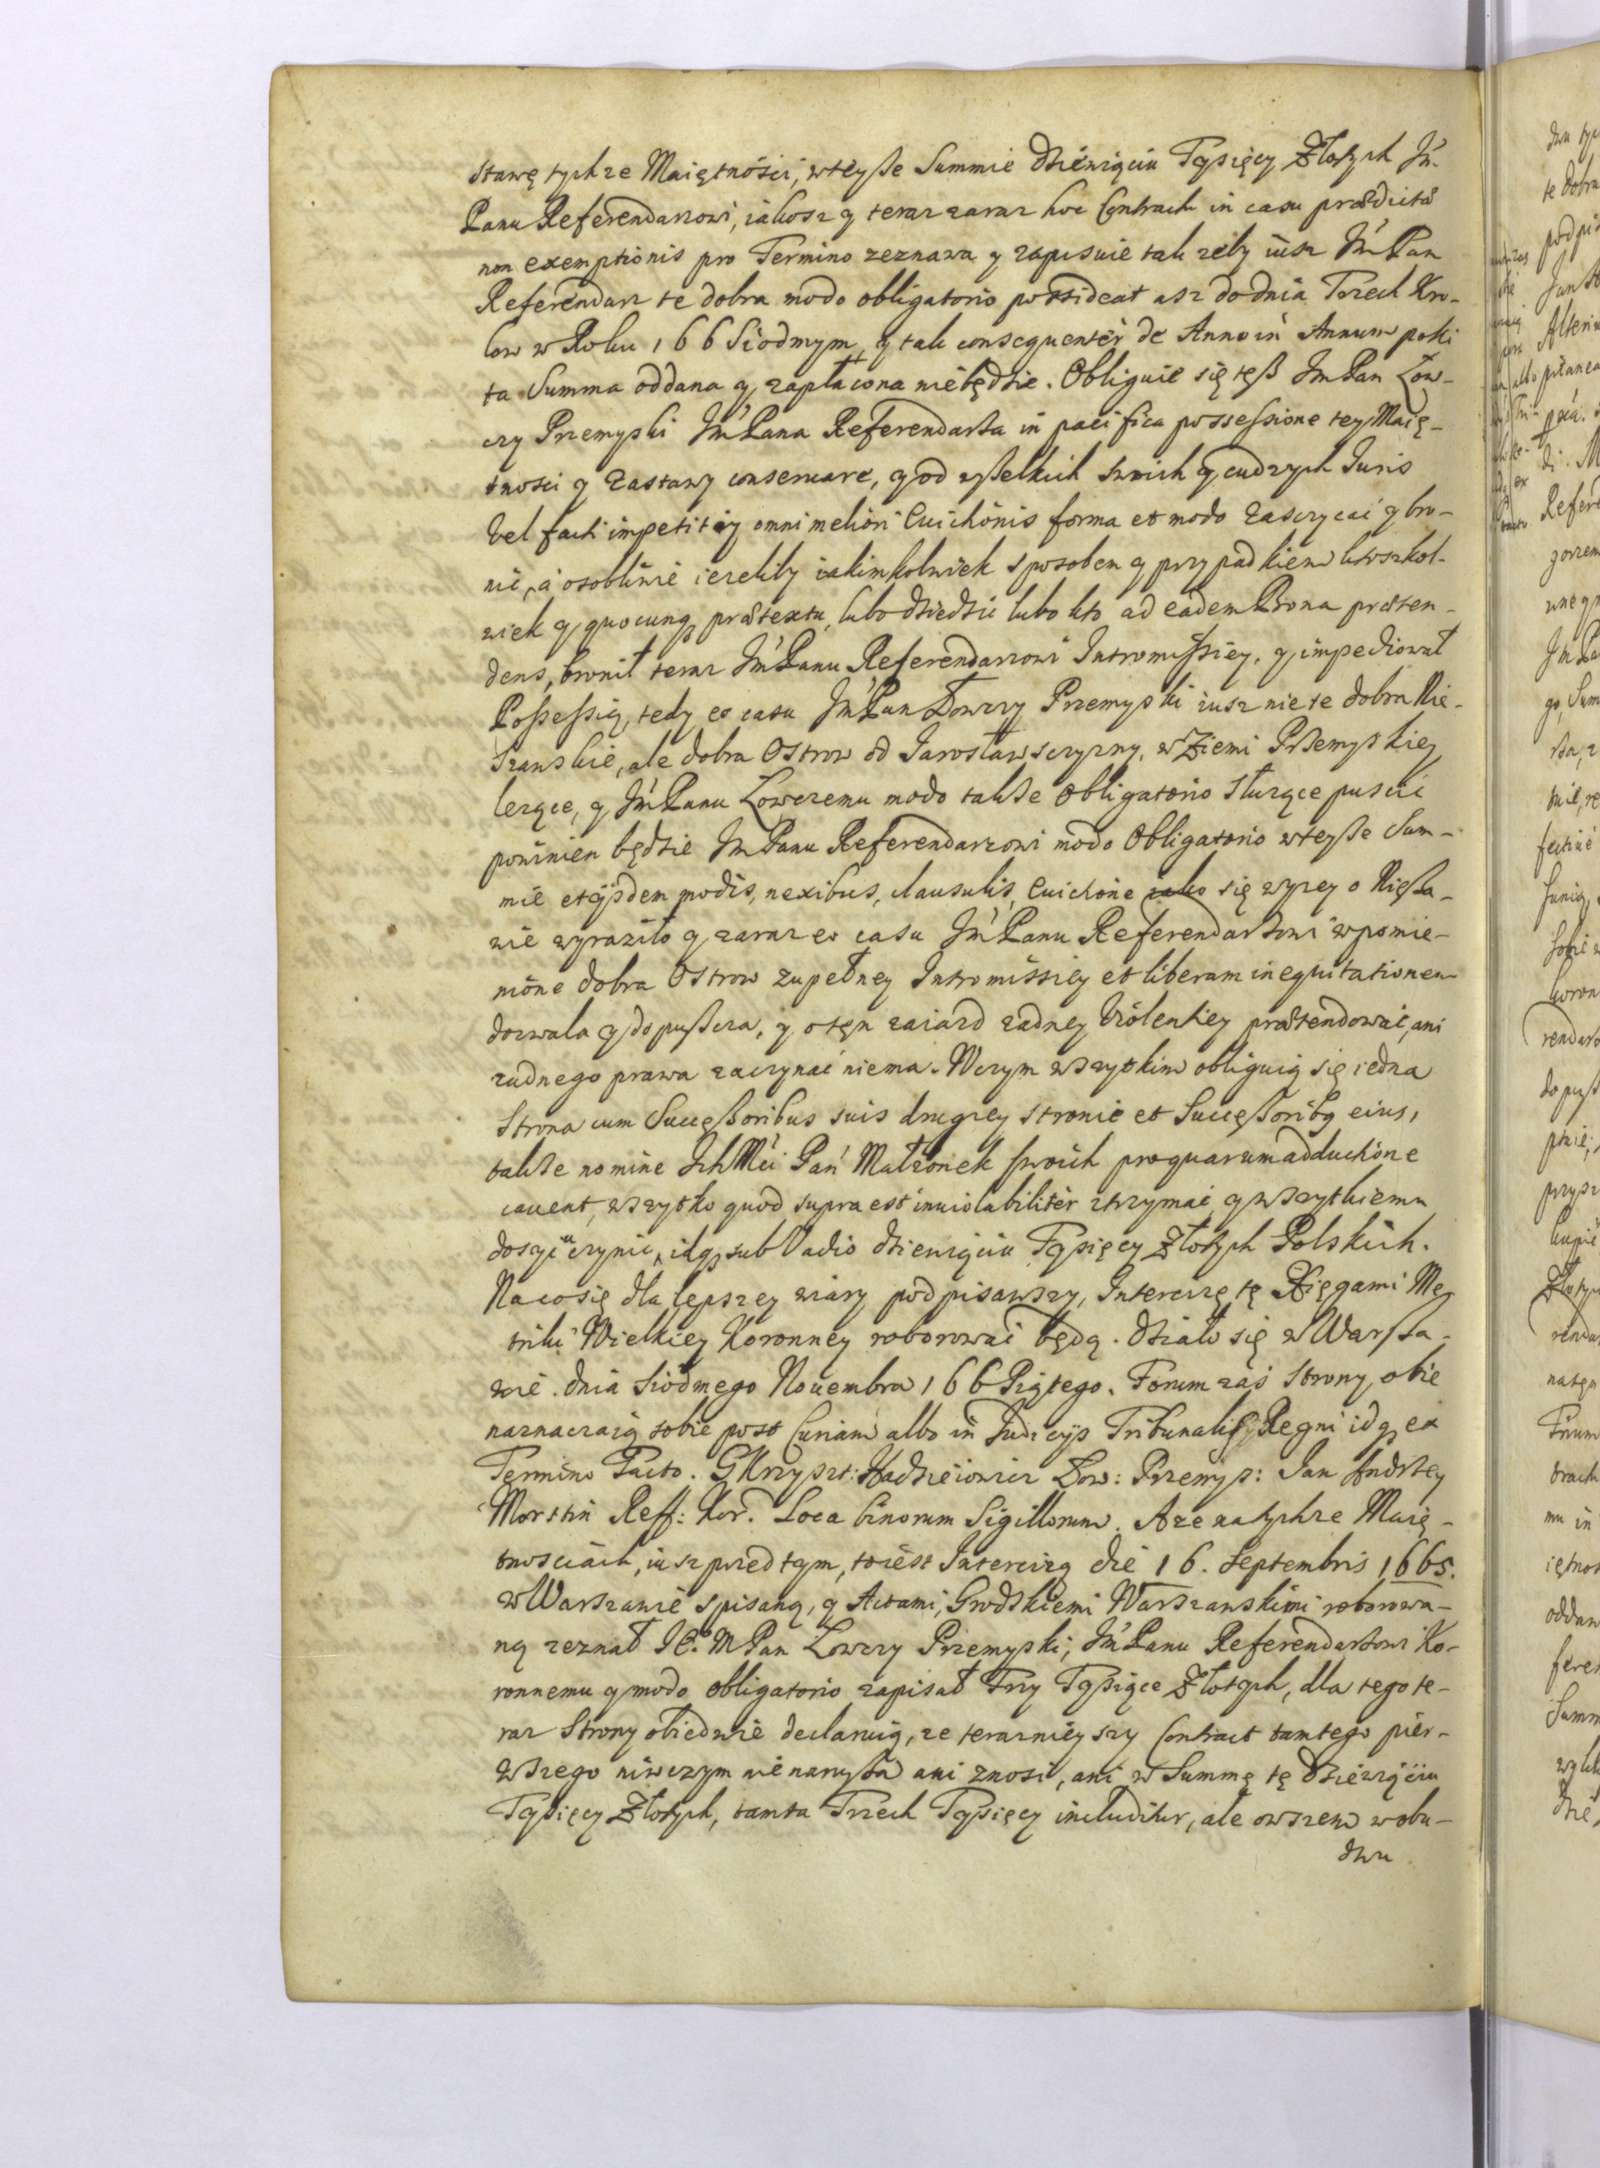 stawę tychze Maiętności, wteysze Summie dziewiąciu Tysięcy Złotych Jm̃.
Panu Referendarzowi, iakosz y teraz zaraz hoc Contractu in casu prædictæ
non exemptionis pro Termino zeznawa y zapisuie tak zeby iusz Jm̃ Pan
Referendarz te dobra modo obligatorio possideat asz do dnia Trzech Kro-
low w Roku 166 Siodmym, y tak consequenter de Anno in Annum poki
ta Summa oddana y zapłacona niebędzie. Obliguie się tesz Jm̃ Pan Low-
czy Przemyski Jm̃ Pana Referendarza in pacifica possessione tey Maię-
tnosci y Zastawy conseruare, y od wszelkich swoich y cudzych Iuris
Vel facti impetitiy omni meliori Euictionis forma et modo Zasczycać y bro-
nić, á osobliwie iezeliby iakimkolwiek sposobem y przypadkiem ktoszkol-
wiek y quocunq; prætextu, lubo dziedzic lubo kto ad eadem Bona præten-
dens, bronił teraz Jm̃ Panu Referendarzowi Intromissiey, y impediował
Possessią, tedy eo casu Jm̃ Pan Łowczy Przemyski iusz nie te dobra Nie-
szawskie, ale dobra Ostrow od Jarosławsczyzny, w Ziemi Przemyskiey
lezące, y Jm̃ Panu Lowczemu modo takze obligatorio słuzące puscić
powinien będzie Jm̃ Panu Referendarzowi modo Obligatorio wteysze Sum-
mie et ijsdem modis, nexibus, clausulis, Euictione iako się wyzey o Niesza-
wie wyraziło y zaraz eo casu Jm̃ Panu Referendarzowi wpomie-
nione dobra Ostrow zupełney Intromissiey et liberam inequitationem
dozwala y dopuszcza, y oten zaiazd zadney Violentiey prætendować, ani
zadnego prawa zaczynać niema. Wczym wszytkim obliguią się iedna
Strona cum Successoribus suis drugiey stronie et Successoribq eius,
takze nomine Ich Mci Pań Małzonek swoich pro quarum adductione
cauent, wszytko quod supra est inuiolabiliter ztrzymać, y wszytkiemu
dosyć uczynić, idq; sub Vadio dziewiąciu Tysięcy Złotych Polskich.
Na co się dla lepszey wiary podpisawszy, Intercizę tę Xięgami Me
triki Wielkiey Koronney roborować będą. Działo się w Warsza-
wie. dnia Siodmego Nouembra 166 Piątego. Forum zaś Strony obie
naznaczaią sobie post Curiam albo in Judicijs Tribunalib Regni idq; ex
Termino Tacto. G Krzyszt: Hadzieiowicz Low: Przemys: Jan Andrzey
Morstin Reff: Kor. Loca binorum Sigillorum. A ze na tychze Maię-
tnosciach, iusz przed tym, to iest Intercizą die 16. Septembris 1665.
w Warszawie spisaną, y Actami, Grodzkiemi Warszawskimi roborowa-
ną zeznał Ie.o M Pan Lowczy Przemyski, Jm̃ Panu Referendarzowi Ko-
ronnemu y modo obligatorio zapisał Trzy Tysiące Złotych, dla tego te-
raz Strony obiedwie declaruią, ze terazniey szy Contract tamtego pier-
wszego niwczym nie narusza ani znosi, ani w Summę tę dziewiąciu
Tysięcy Złotych, tamta Trzech Tysięcy includitur, ale owszem wobu-
dwu